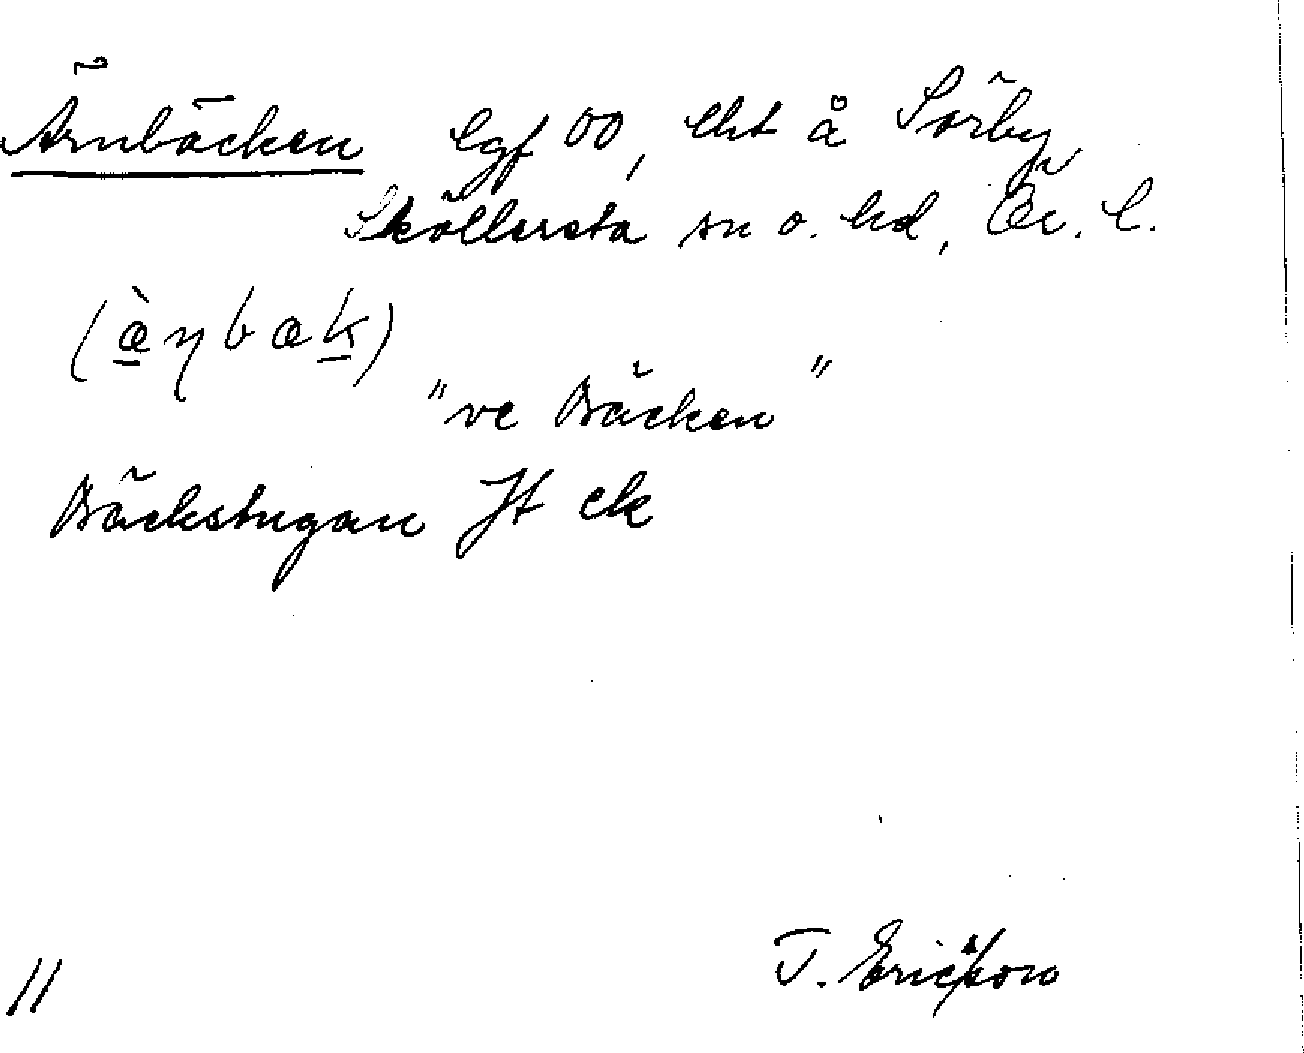 Ärnbäcken lgf 00, lht å Sörby,
Sköllersta sn o. hd, Ör. l.
(æ̀ɳbæk)
"ve Bäcken"
Bäckstugan Jt ek
T. Ericsson
11